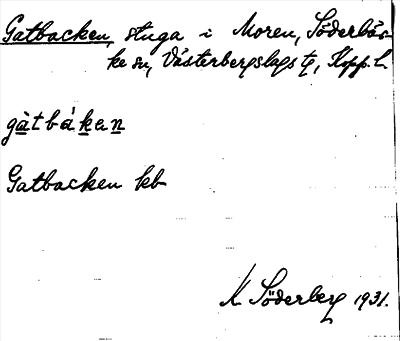 Gatbacken, stuga i Moren, Söderbär-
ke sn, Västerbergslags tg, Kopp. l.
gàtbáken
Gatbacken kb
K Söderberg 1931.